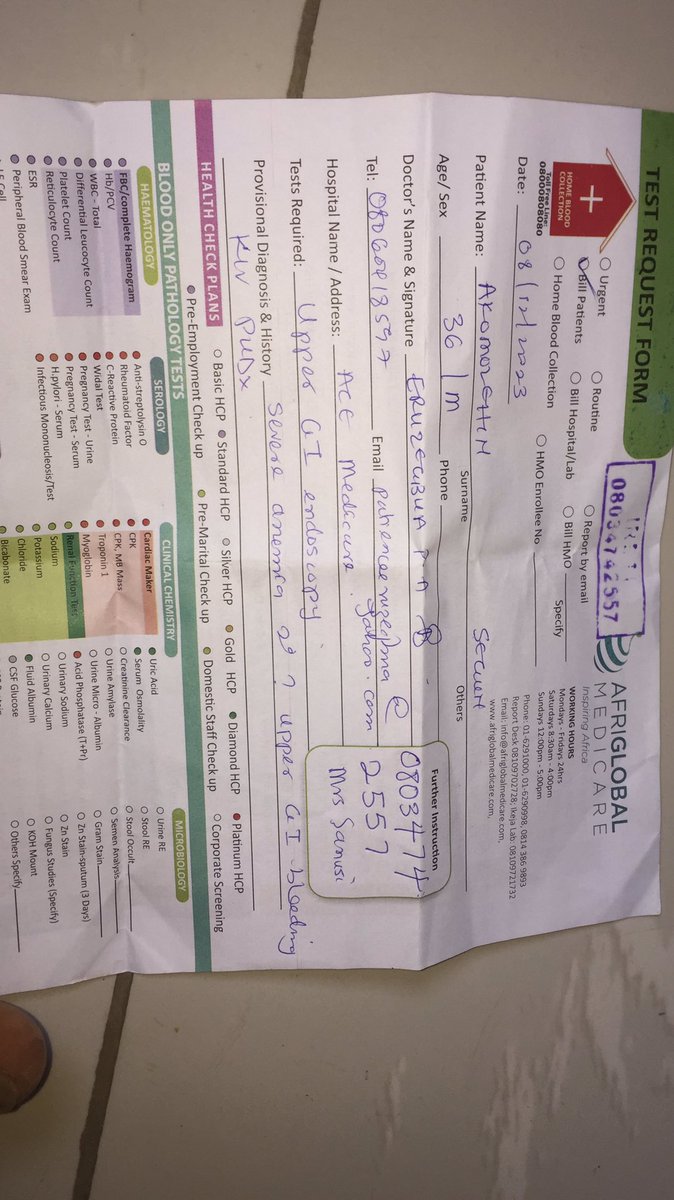 TEST REQUEST FORM
08034742557
AFRIGLOBAL
MEDICARE
Inspiring Africa
HOME BLOOD
COLLECTION
Toll Free Line:
08000808080
Urgent
Routine
Report by email
Bill Patients
Bill Hospital/Lab
Bill HMO
Specify
Home Blood Collection
HMO Enrollee No
WORKING HOURS
Mondays - Fridays 24hrs
Saturdays 8:30am - 4:00pm
Sundays 12:00pm - 5:00pm
Phone: 01-6291000, 01-6290998, 0814 386 9893
Report Desk 08109702728; Ikeja Lab: 08109721732
Email: info@afriglobalmedicare.com,
www.afriglobalmedicare.com,
Date: 08/12/2023
Patient Name: AKOMOLEHIN
Surname
Others
Age/ Sex 36/M Phone
Doctor's Name & Signature
Tel: Email @
yahoo.com
Further Instruction
0803474
2557
Mrs Sanusi
Hospital Name / Address: ACE Medicare
Tests Required: Upper GI endoscopy
Provisional Diagnosis & History Severe anemia 2° ? Upper GI-bleeding
KIV PUDx
HEALTH CHECK PLANS
Basic HCP
Standard HCP
Silver HCP
Gold HCP
Diamond HCP
Platinum HCP
Pre-Employment Check up
Pre-Marital Check up
Domestic Staff Check up
Corporate Screening
BLOOD ONLY PATHOLOGY TESTS
HAEMATOLOGY
FBC/complete Haemogram
Hb/PCV
WBC - Total
Differential Leucocyte Count
Platelet Count
Reticulocyte Count
ESR
Peripheral Blood Smear Exam
LE Cell
SEROLOGY
Anti-streptolysin O
Rheumatoid Factor
C-Reactive Protein
Widal Test
Pregnancy Test - Urine
Pregnancy Test - Serum
H.pylori - Serum
Infectious Mononucleosis/Test
CLINICAL CHEMISTRY
Cardiac Maker
CPK
CPK, MB Mass
Troponin 1
Myoglobin
Renal Function Test
Sodium
Potassium
Chloride
Bicabonate
Uric Acid
Serum Osmolality
Creatinine Clearance
Urine Amylase
Urine Micro - Albumin
Acid Phosphatase (T+Pr)
Urinary Sodium
Urinary Calcium
Fluid Albumin
CSF Glucose
MICROBIOLOGY
Urine RE
Stool RE
Stool Occult
Semen Analysis
Gram Stain
Zn Stain-sputum (3 Days)
Zn Stain
Fungus Studies (Specify)
KOH Mount
Others Specify